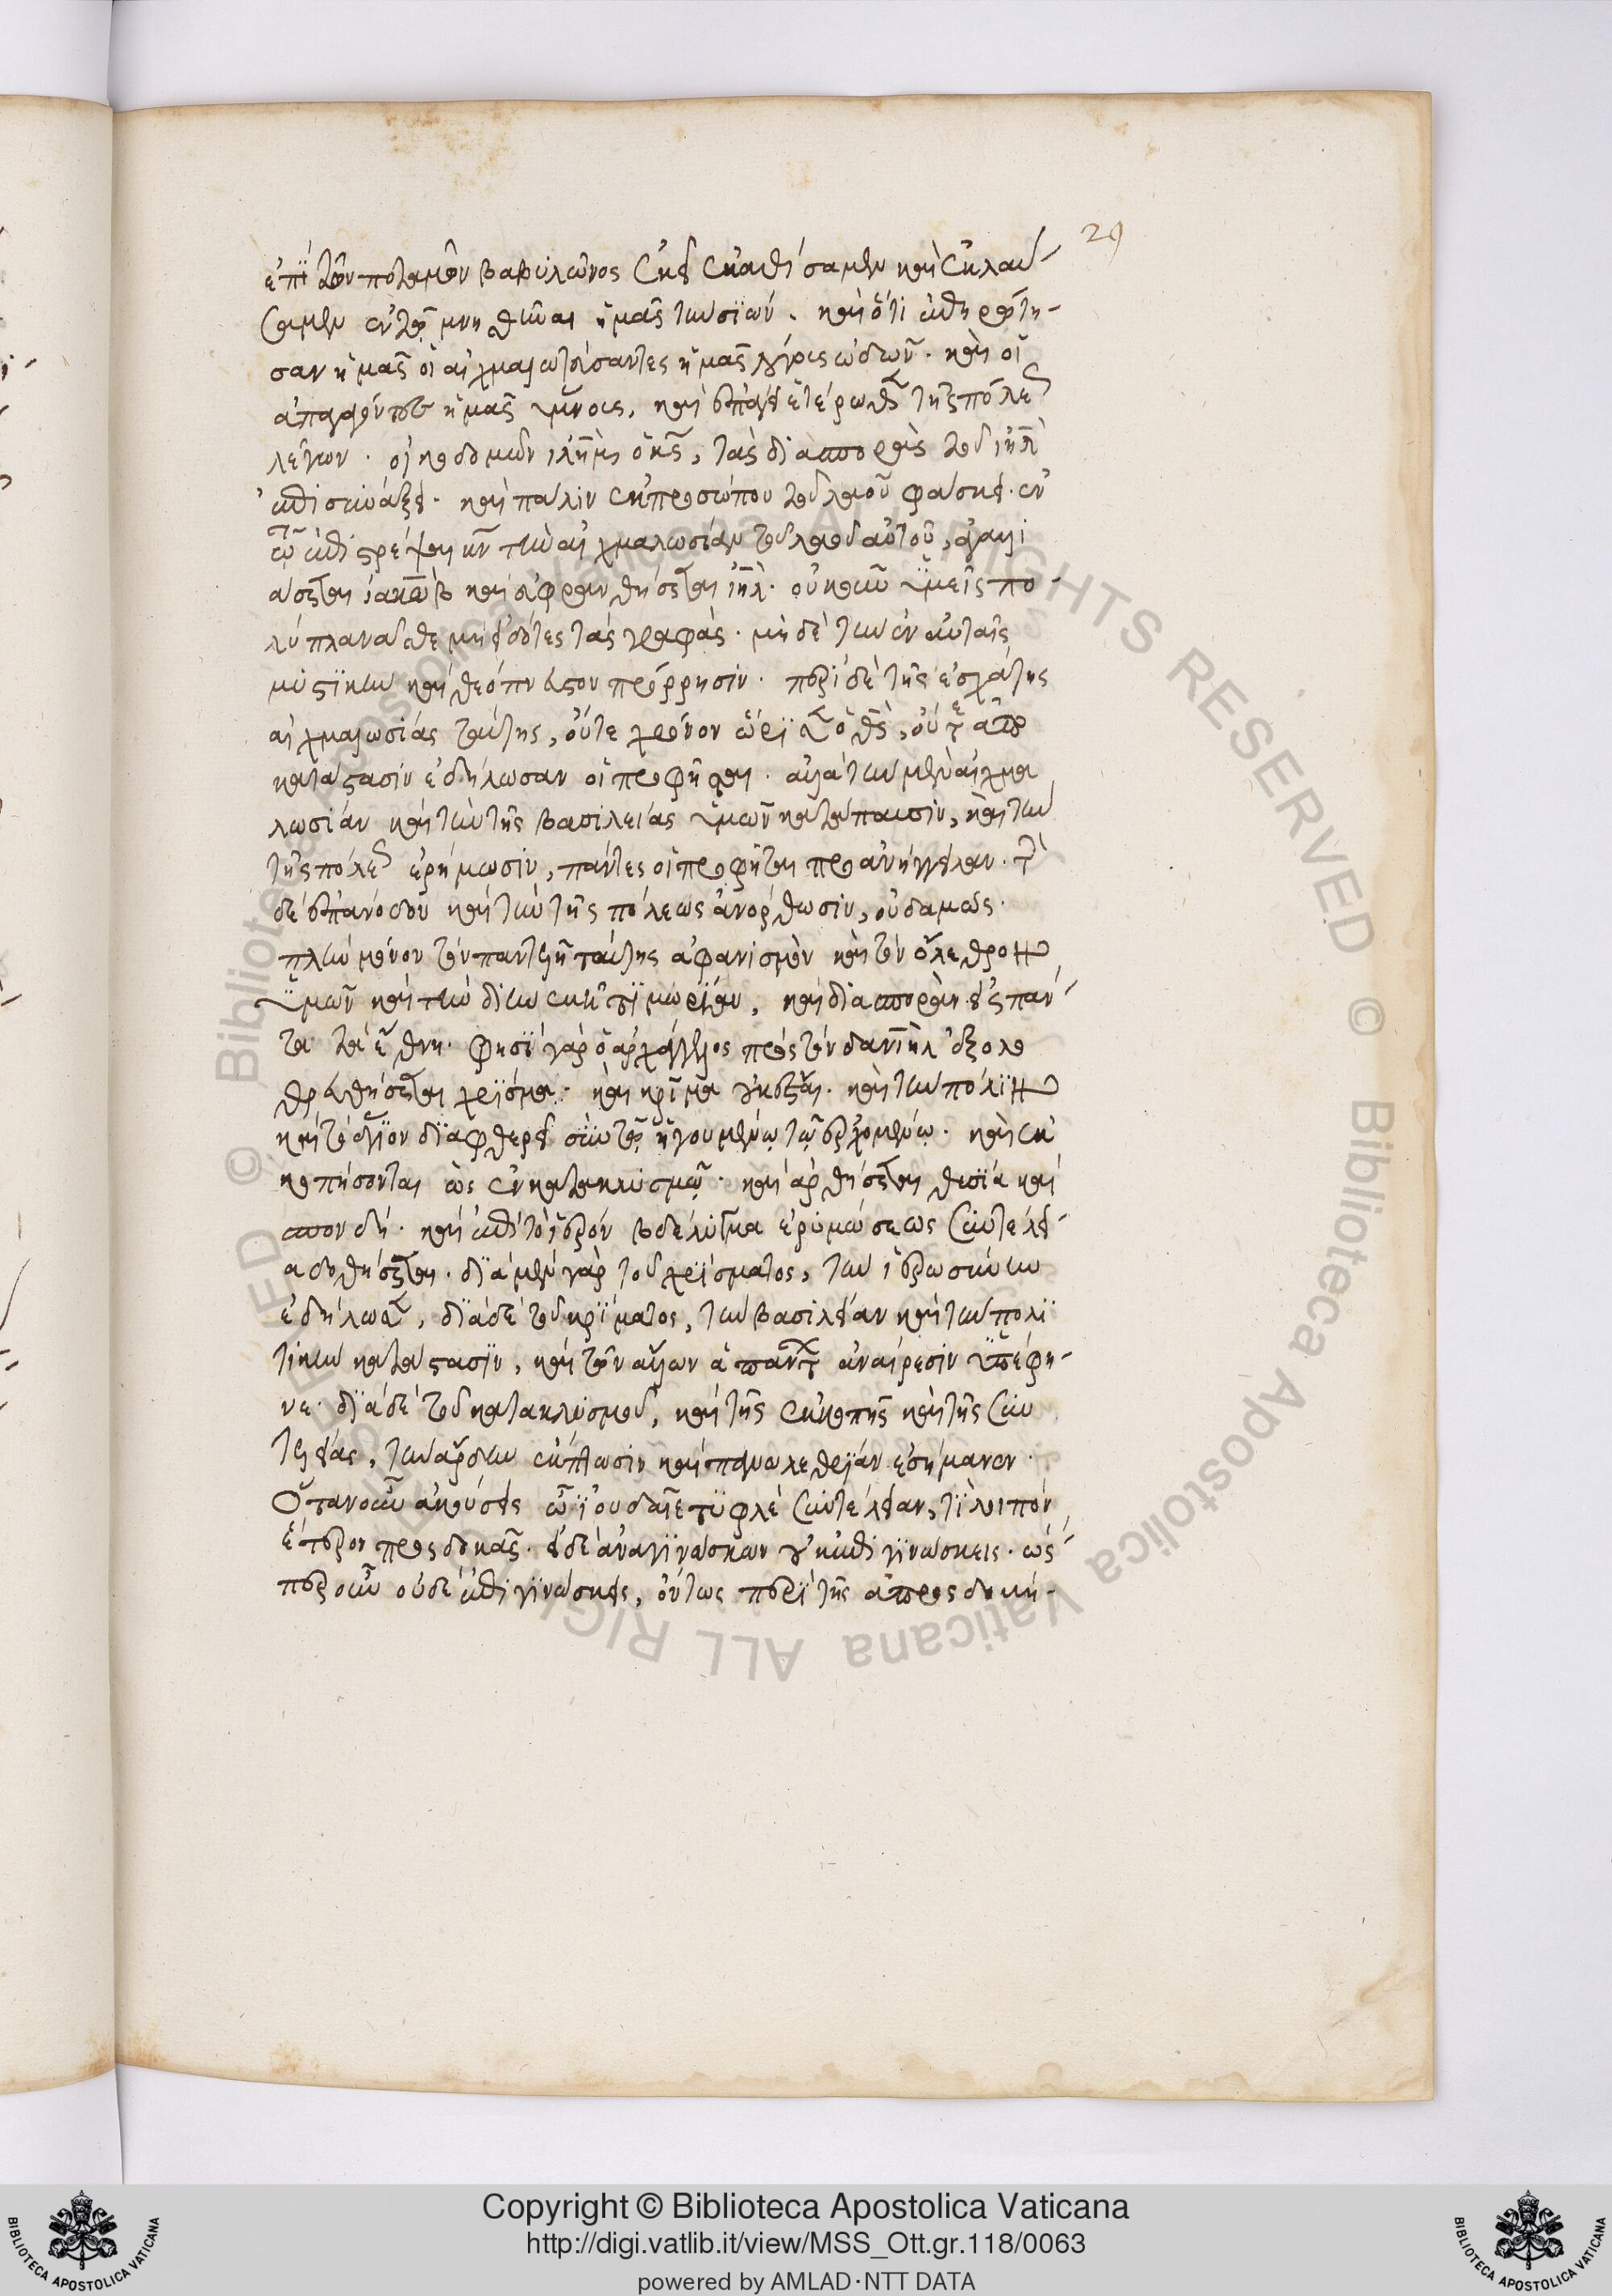 29
ἐπὶ τῶν ποταμῶν βαβυλῶνος ἐκεῖ ἐκαθίσαμεν καὶ ἐκλαύ-
σαμεν ἐν τῷ μνησθῆναι ἡμᾶς τὴν σιών. καὶ ὅτι ἐπηρώτη-
σαν ἡμᾶς οἱ αἰχμαλωτίσαντες ἡμᾶς λόγους ὠδῶν. καὶ οἱ
ἀπαγαγόντες ἡμᾶς ὕμνους. καὶ ἐπάγει ἑτέρωθεν τῆς πόλεως
λέγων. οἰκοδομῶν ἰλημ ὁ κς, τὰς διασπορὰς τοῦ ιηλ
ἐπισυνάξει. καὶ πάλιν ἐκ προσώπου τοῦ λαοῦ φάσκει. ἐν
τῷ ἐπιστρέψαι κν τὴν αἰχμαλωσίαν τοῦ λαοῦ αὐτοῦ, ἀγαλλι
άσεται ἰακὼβ καὶ εὐφρανθήσεται ιηλ. οὐκοῦν ὑμεῖς πο-
λὺ πλανᾶσθε μὴ εἰδότες τὰς γραφάς. μὴ δὲ τὴν ἐν αὐταῖς
μυστικὴν καὶ θεόπνευστον πρόρρησιν. περὶ δὲ τῆς ἐσχάτης
αἰχμαλωσίας ταύτης, οὔτε χρόνον ὥρισεν ὁ θς, οὔτε
κατάστασιν ἐδήλωσαν οἱ προφῆται. ἀλλὰ τὴν μὲν αἰχμα
λωσίαν καὶ τὴν τῆς βασιλείας ὑμῶν κατάπαυσιν, καὶ τὴν
τῆς πόλεως ἐρήμωσιν, πάντες οἱ προφῆται προανήγγειλαν. τὴν
δὲ ἐπάνοδον καὶ τὴν τῆς πόλεως ἀνόρθωσιν, οὐδαμῶς.
πλὴν μόνον τὸν παντελῆ ταύτης ἀφανισμὸν καὶ τὸν ὄλεθρον
ὑμῶν καὶ τὴν δίκην καὶ τιμωρίαν, καὶ διασπορὰν εἰς πάν-
τα τὰ ἔθνη. φησὶ γὰρ ὁ ἀρχάγγελος πρὸς τὸν δανιὴλ ἐξολο
θρευθήσεται χρίσμα. καὶ κρίμα οὐκ ἔσται. καὶ τὴν πόλιν
καὶ τὸ ἅγιον διαφθερεῖ σὺν τῷ ἡγουμένῳ τῷ ἐρχομένῳ. καὶ ἐκ
κοπήσονται ὡς ἐν κατακλυσμῷ. καὶ ἀρθήσεται θυσία καὶ
σπονδή. καὶ ἐπὶ τὸ ἱερὸν βδέλυγμα ἐρημώσεως συντέλει-
α δοθήσεται. διὰ μὲν γὰρ τοῦ χρίσματος, τὴν ἱερωσύνην
ἐδήλωσεν, διὰ δὲ τοῦ κρίματος, τὴν βασιλείαν καὶ τὴν πολι
τικὴν κατάστασιν, καὶ τῶν ἁγίων ἁπάντων ἀναίρεσιν ὑπέφη-
νε. διὰ δὲ τοῦ κατακλυσμοῦ, καὶ τῆς ἐκκοπῆς καὶ τῆς συν
τελείας, τὴν ἄρδην ἔκπτωσιν καὶ πανωλεθρίαν ἐσήμανεν.
Ὅταν οὖν ἀκούσῃς ὦ ἰουδαῖε τυφλὲ συντέλειαν, τί λοιπὸν
ἕτερον προσδοκᾷς. εἰ δὲ ἀναγινώσκων οὐκ ἐπιγινώσκεις. ὡς-
περ οὖν οὐδὲ ἐπιγινώσκεις, οὕτως περὶ τῆς ἀπροσδοκή-
Copyright © Biblioteca Apostolica Vaticana
http://digi.vatlib.it/view/MSS_Ott.gr.118/0063
powered by AMLAD·NTT DATA
BIBLIOTECA APOSTOLICA VATICANA
BIBLIOTECA APOSTOLICA VATICANA
© Biblioteca Apostolica Vaticana ALL RIGHTS RESERVED © Biblioteca Apostolica Vaticana ALL RIGHTS RESERVED